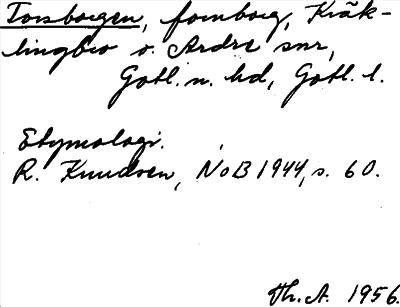 Torsborgen, fornborg, Kräk-
lingbo o. Ardre snr,
Gotl. n. hd, Gotl. l.
Etymologi.
R. Knudsen, NoB 1944, s. 60.
Th. A. 1956.